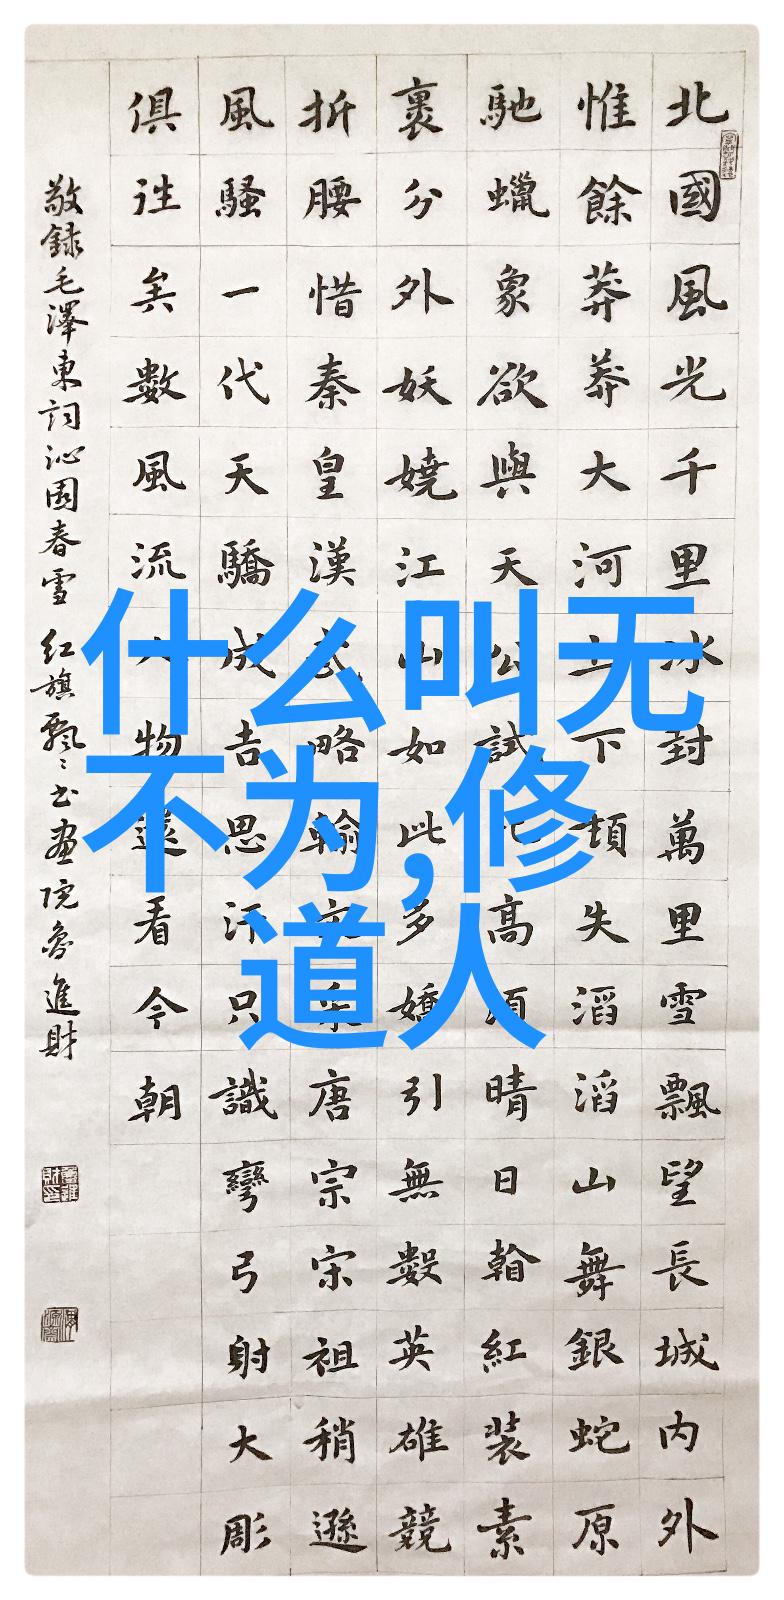 北國風光千里冰封萬里雪飄望長城内外
惟餘莽莽大河上下頓失滔滔山舞銀蛇原
馳蠟象欲與天公試比高須晴日翰紅裝素
裹分外妖嬈江山如此多嬌引無數英雄競
折腰惜秦皇漢武略輸文采唐宗宋祖稍遜
風騷一代天驕成吉思汗只識彎弓射大彫
俱往矣數風流人物還看今朝
敬録毛澤東詞沁園春雪 红旗飄々书画院魯進財
什么叫无
不为,修
道人